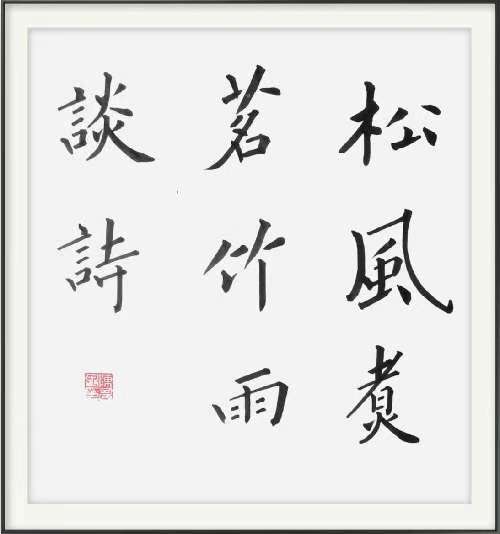 松風煑
茗竹雨
談詩